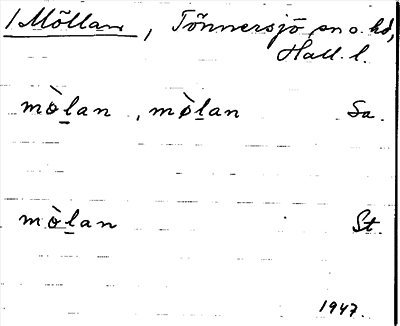 1 Möllan, Tönnersjö sn o. hd,
Hall. l.
mò̱lan, mø̀lan Sa.
mò̱lan St.
1947.